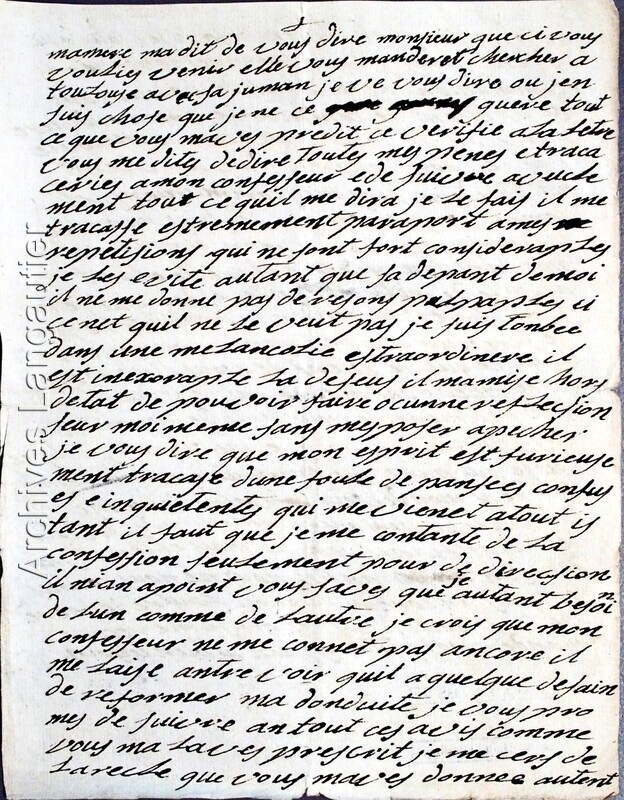 mamere ma dit de vous dire monsieur que ci vous
voulies venir elle vous manderet chercher a
toulouse avec sa juman je ve vous dire ou jen
suis chose que je ne ce quere tout
ce que vous maves predit ce verifie a la letre
vous me dites dedire toutes mes penes etraca
ceries amon confesseur ede suivre avucle
ment tout ce quil me dira je le fais il me
tracasse estremement paraport ames
repetisions qui ne sont fort considerables
je les evite autant que sa depant de moi
il ne me donne pas de resons palpables ci
ce net quil ne le veut pas je suis tonbee
dans une melancolie estraordinere il
est inexorable la deseus il mamise hors
detat de pouvoir faire ocunne reflection
seur moi meme sans mesposer apecher
je vous dire que mon esprit est furieuse
ment tracase dune foule de pansees confus
es e inquietentes qui me vienet atout is
tant il faut que je me contante de la
confession seulement pour de direction
il nian apoint vous saves que je autant besoin
de lun comme de lautre je crois que mon
confesseur ne me connet pas ancore il
me laise antre voir quil a quelque desain
de reformer ma conduite je vous pro
mes de suivre an tout ces avis comme
vous ma laves prescrit je me cers de
la recle que vous maves donnee autent
Archives Langautier